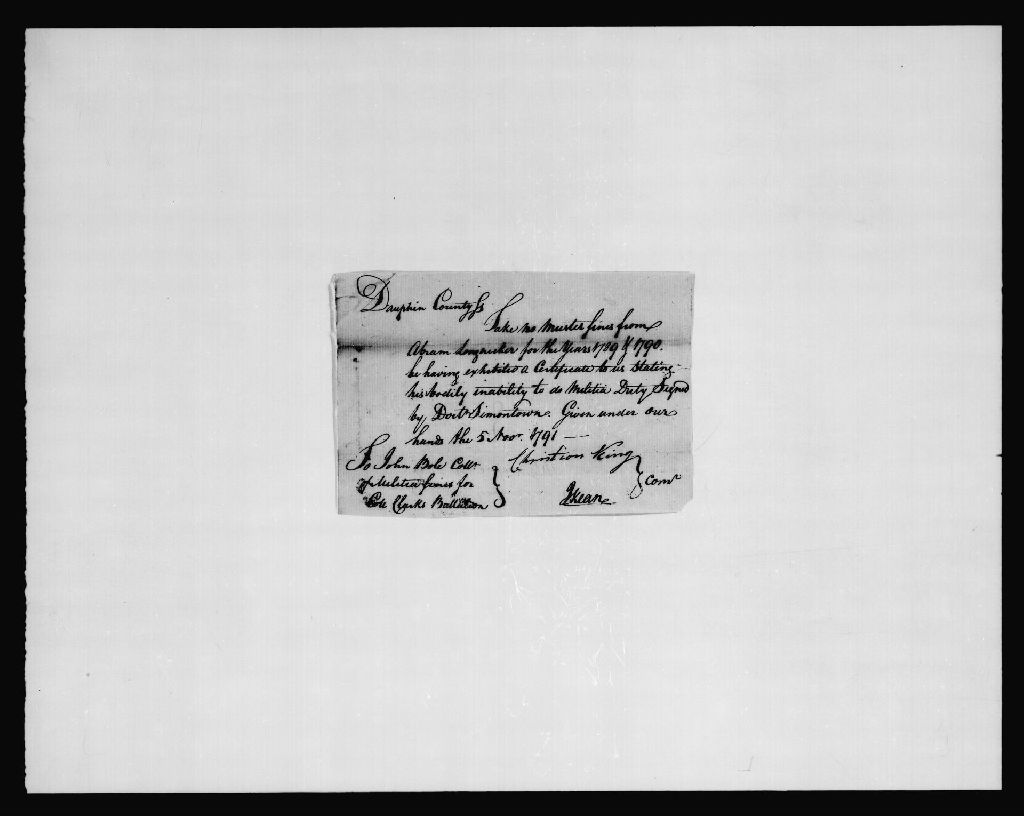 Dauphin County Ss
Take no muster fines from
Abram Longnicker for the Years 1789 & 1790.
he having exhibited a Certificate to us Stating
his bodily inability to do Militia Duty Signed
by Doctr Simontown. Given under our
hands the 5 Novr. 1791 —
To John Bole Collr
of Militia fines for
Coll Clarks Battalion
Christian King
J Kean
Comrs